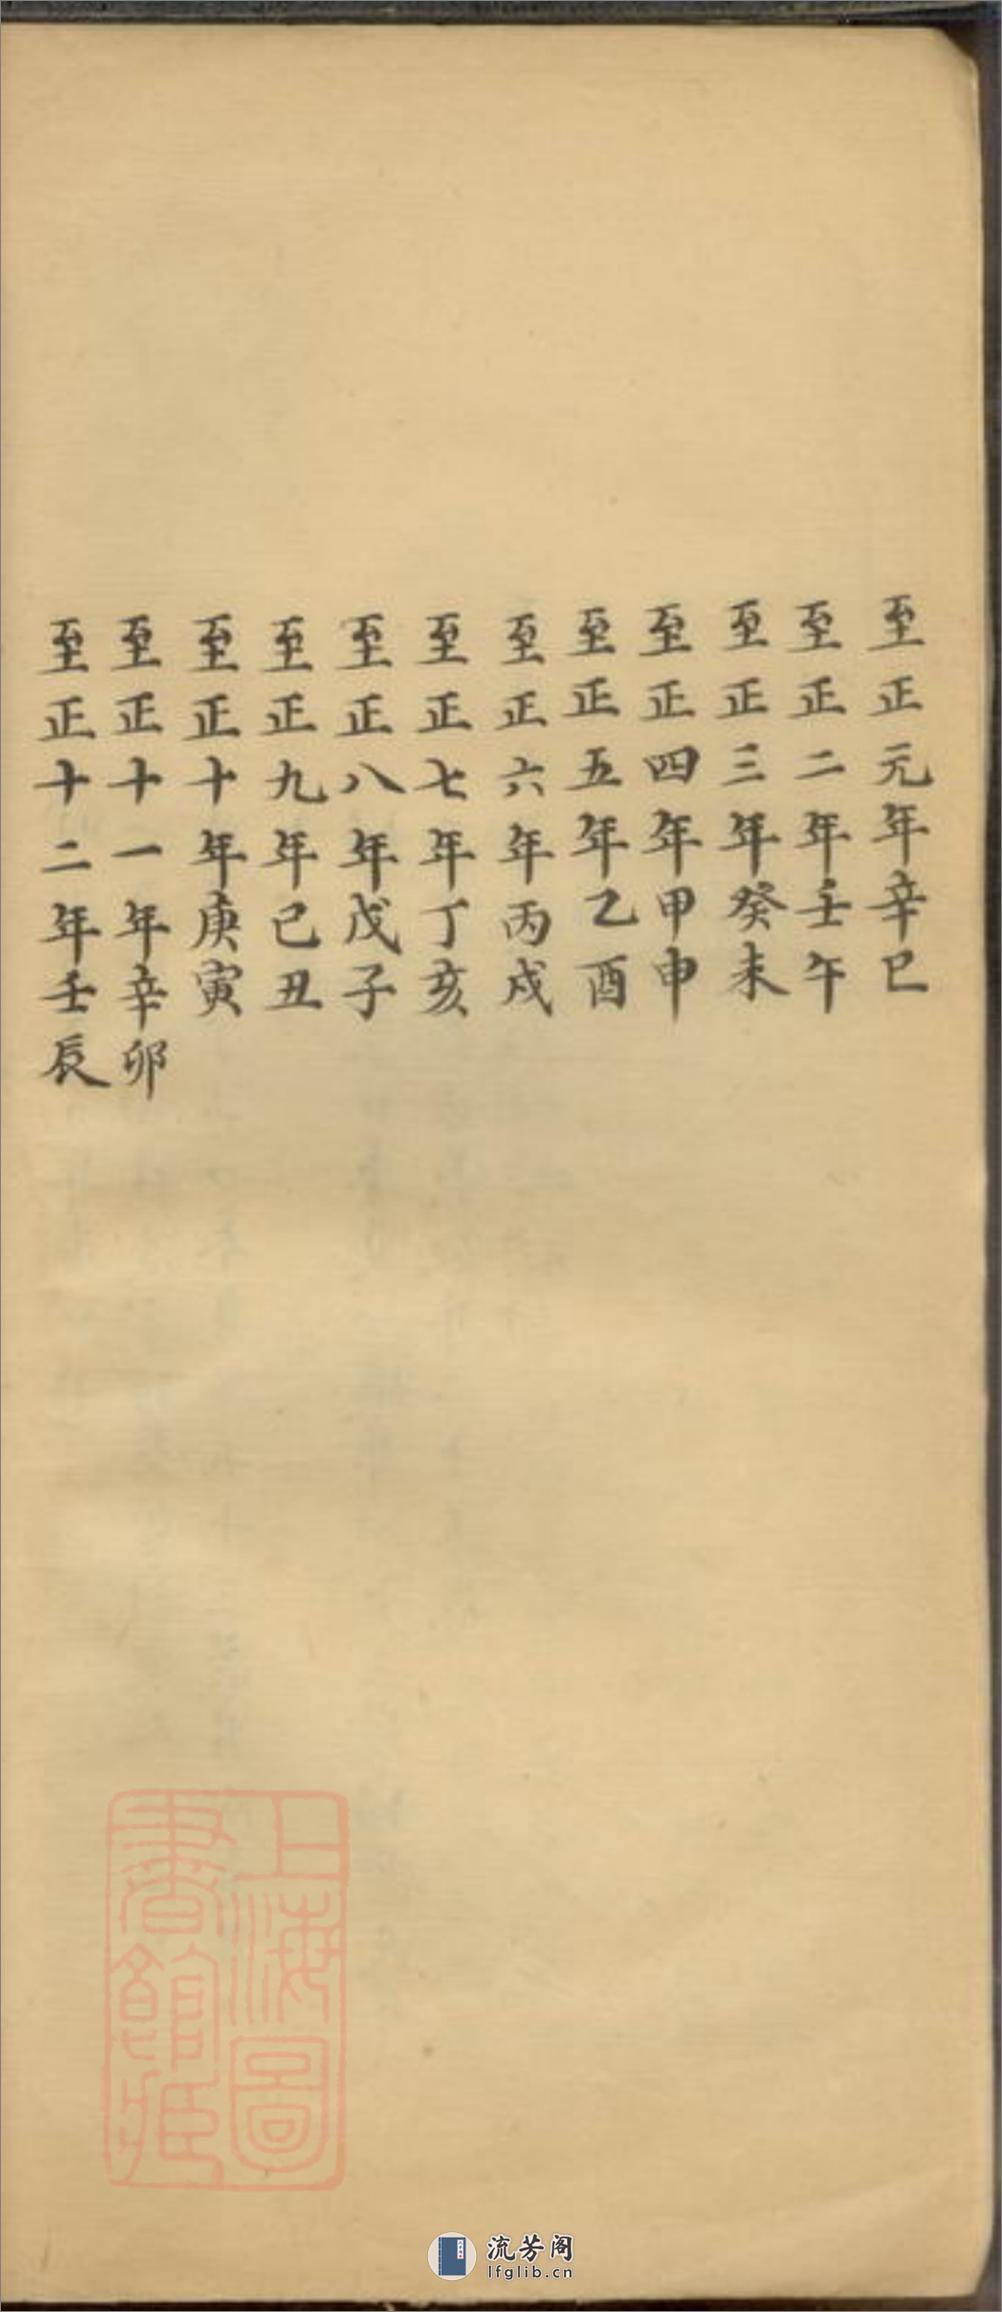 至正元年辛巳
至正二年壬午
至正三年癸未
至正四年甲申
至正五年乙酉
至正六年丙戌
至正七年丁亥
至正八年戊子
至正九年己丑
至正十年庚寅
至正十一年辛卯
至正十二年壬辰
上海圖
書館藏
流芳阁
lfglib.cn